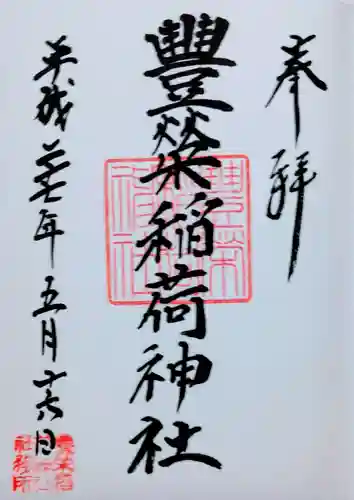 奉拝
豐榮稲荷神社
平成二十七年五月十六日